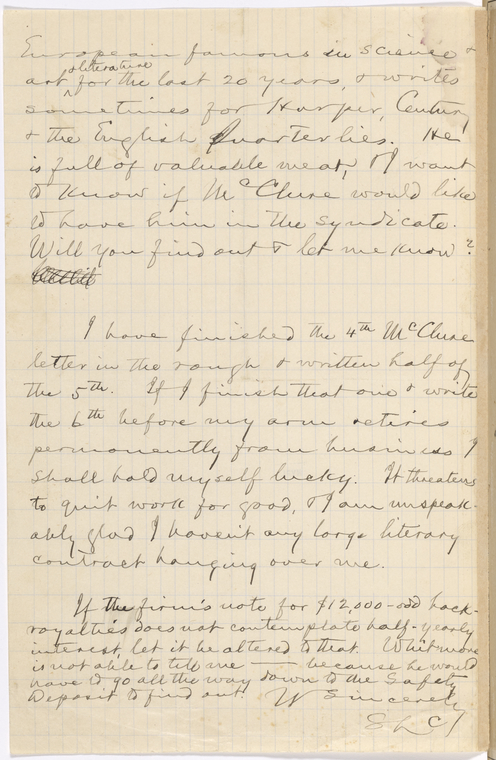 European famous in science &
art & literature for the last 20 years, & writes
sometimes for Harper, Century
& the English Quarterlies. He
is full of valuable meat, & I want
to know if McClure would like
to have him in the syndicate.
Will you find out & let me know?
I have finished the 4th McClure
letter in the rough & written half of
the 5th. If I finish that one & write
the 6th before my arm retires
permanently from business I
shall hold myself lucky. It threatens
to quit work for good, & I am unspeak-
ably glad I haven't any large literary
contract hanging over me.
If the firm's note for $12,000-odd back-
royalties does not contemplate half-yearly
interest, let it be altered to that. Whitmore
is not able to tell me — because he would
have to go all the way down to the Safety
Deposit to find out.
Sincerely
SLC